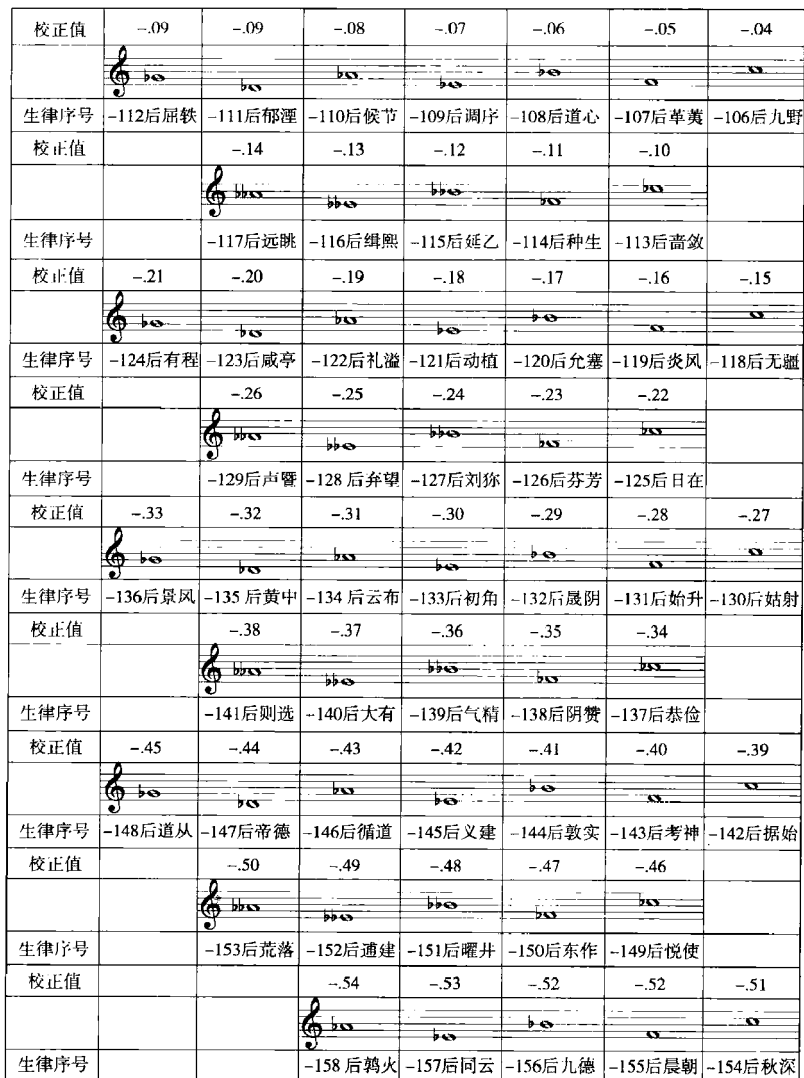 校正值 –.09 –.09 –.08 –.07 –.06 –.05 –.04
生律序号 –112后屈轶 –111后郁湮 –110后候节 –109后调序 –108后道心 –107后革荑 –106后九野
校正值 –.14 –.13 –.12 –.11 –.10
生律序号 –117后远眺 –116后缉熙 –115后延乙 –114后种生 –113后啬敛
校正值 –.21 –.20 –.19 –.18 –.17 –.16 –.15
生律序号 –124后有程 –123后咸亭 –122后礼溢 –121后动植 –120后允塞 –119后炎风 –118后无疆
校正值 –.26 –.25 –.24 –.23 –.22
生律序号 –129后声暨 –128 后弃望 –127后刘狝 –126后芬芳 –125后日在
校正值 –.33 –.32 –.31 –.30 –.29 –.28 –.27
生律序号 –136后景风 –135 后黄中 –134 后云布 –133后初角 –132后晟阴 –131后始升 –130后姑射
校正值 –.38 –.37 –.36 –.35 –.34
生律序号 –141后则选 –140后大有 –139后气精 –138后阴赞 –137后恭俭
校正值 –.45 –.44 –.43 –.42 –.41 –.40 –.39
生律序号 –148后道从 –147后帝德 –146后循道 –145后义建 –144后敦实 –143后考神 –142后据始
校正值 –.50 –.49 –.48 –.47 –.46
生律序号 –153后荒落 –152后逋建 –151后曜井 –150后东作 –149后悦使
校正值 –.54 –.53 –.52 –.52 –.51
生律序号 –158 后鹑火 –157后同云 –156后九德 –155后晨朝 –154后秋深